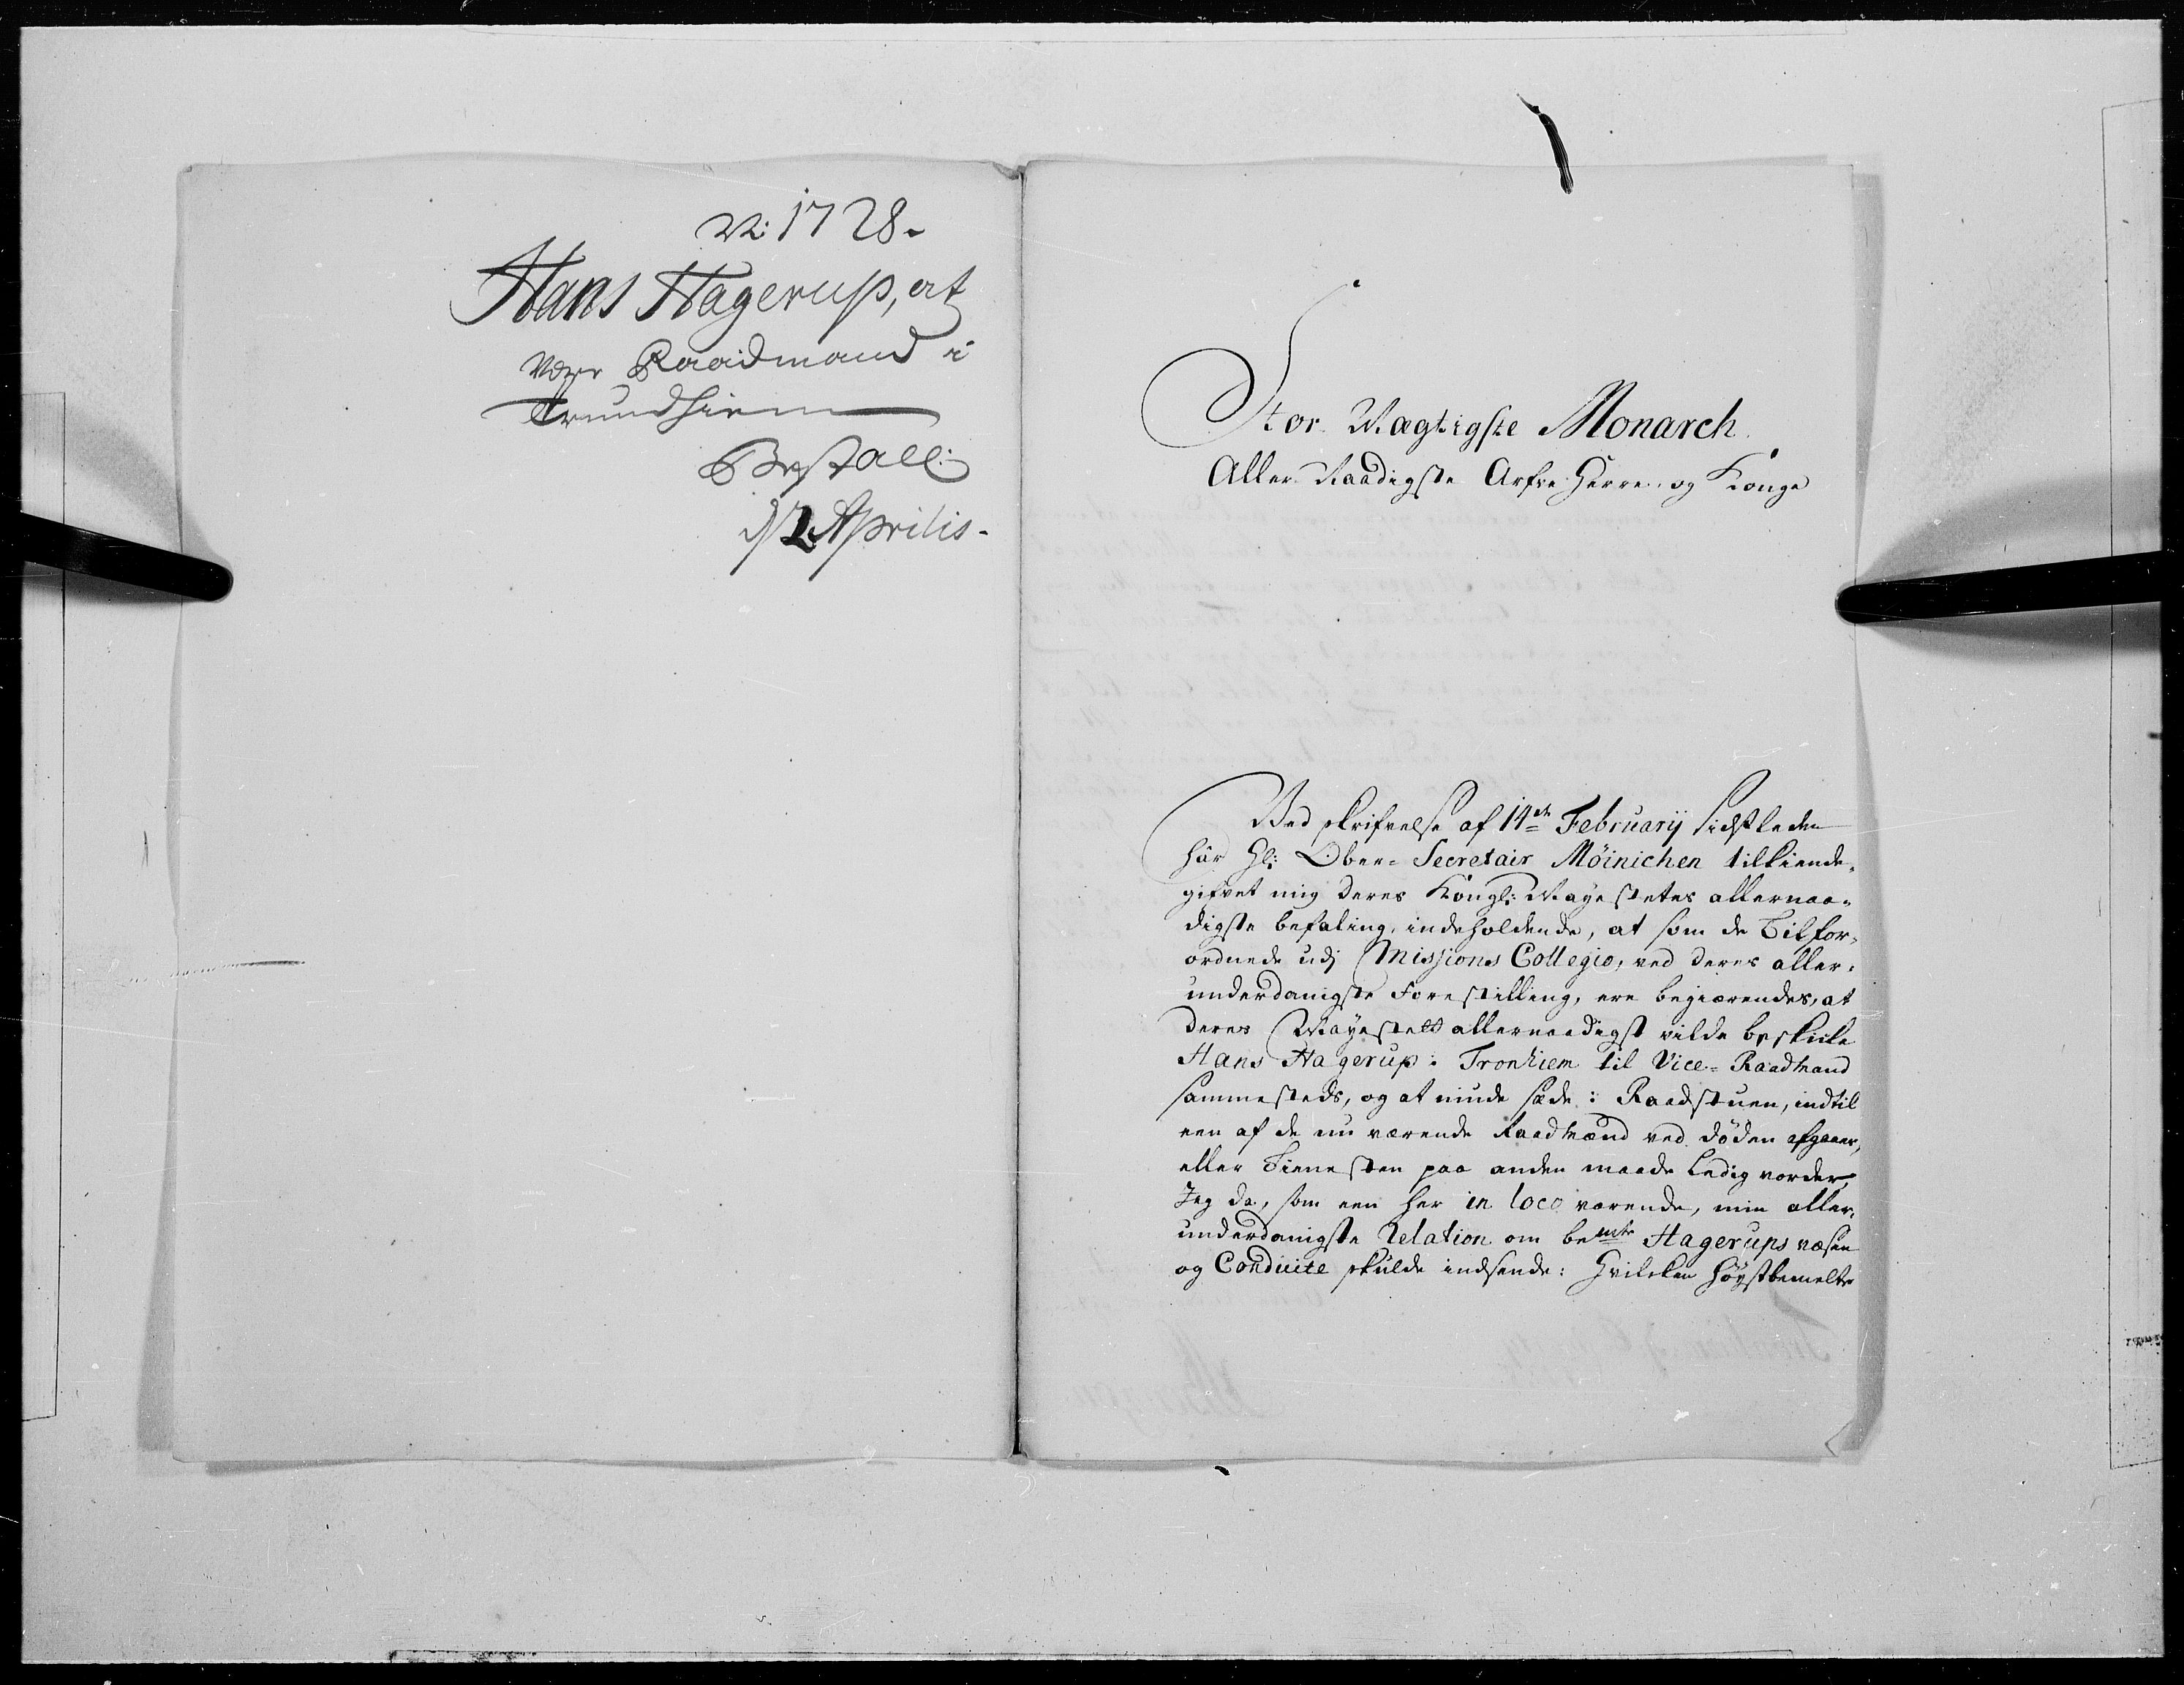 N: 1728.
Hans Hagerup, at
være Raadmand i
Trundhiem
Bestall:
d 2 Aprilis.
Stor Mægtigste Monarch
Aller Naadigste Arfve Herre og Konge
Ved skrifvelse af 14de February sidstleden
har Hl: Ober-Secretair Möinichen tilkiende-
gifvet mig deres Kongl: Mayestetes allernaa-
digste befaling, indeholdende, at som de Tilfor-
ordnede udj Missions Collegio, ved deres aller-
underdanigste Forestilling, ere begiærendes, at
deres Mayestett allernaadigst vilde beskicke
Hans Hagerup i Tronhiem til Vice-Raadmand
sammesteds, og at niude sæde i Raadstuen, indtil
een af de nu værende Raadmænd ved døden afgaaer,
eller Tienesten paa anden maade ledig vorder,
Jeg da, som een her in loco værende, min aller-
underdanigste Relation om bemte Hagerups væsen
og Conduite skulde indsende: Hvilcken høystbemelte